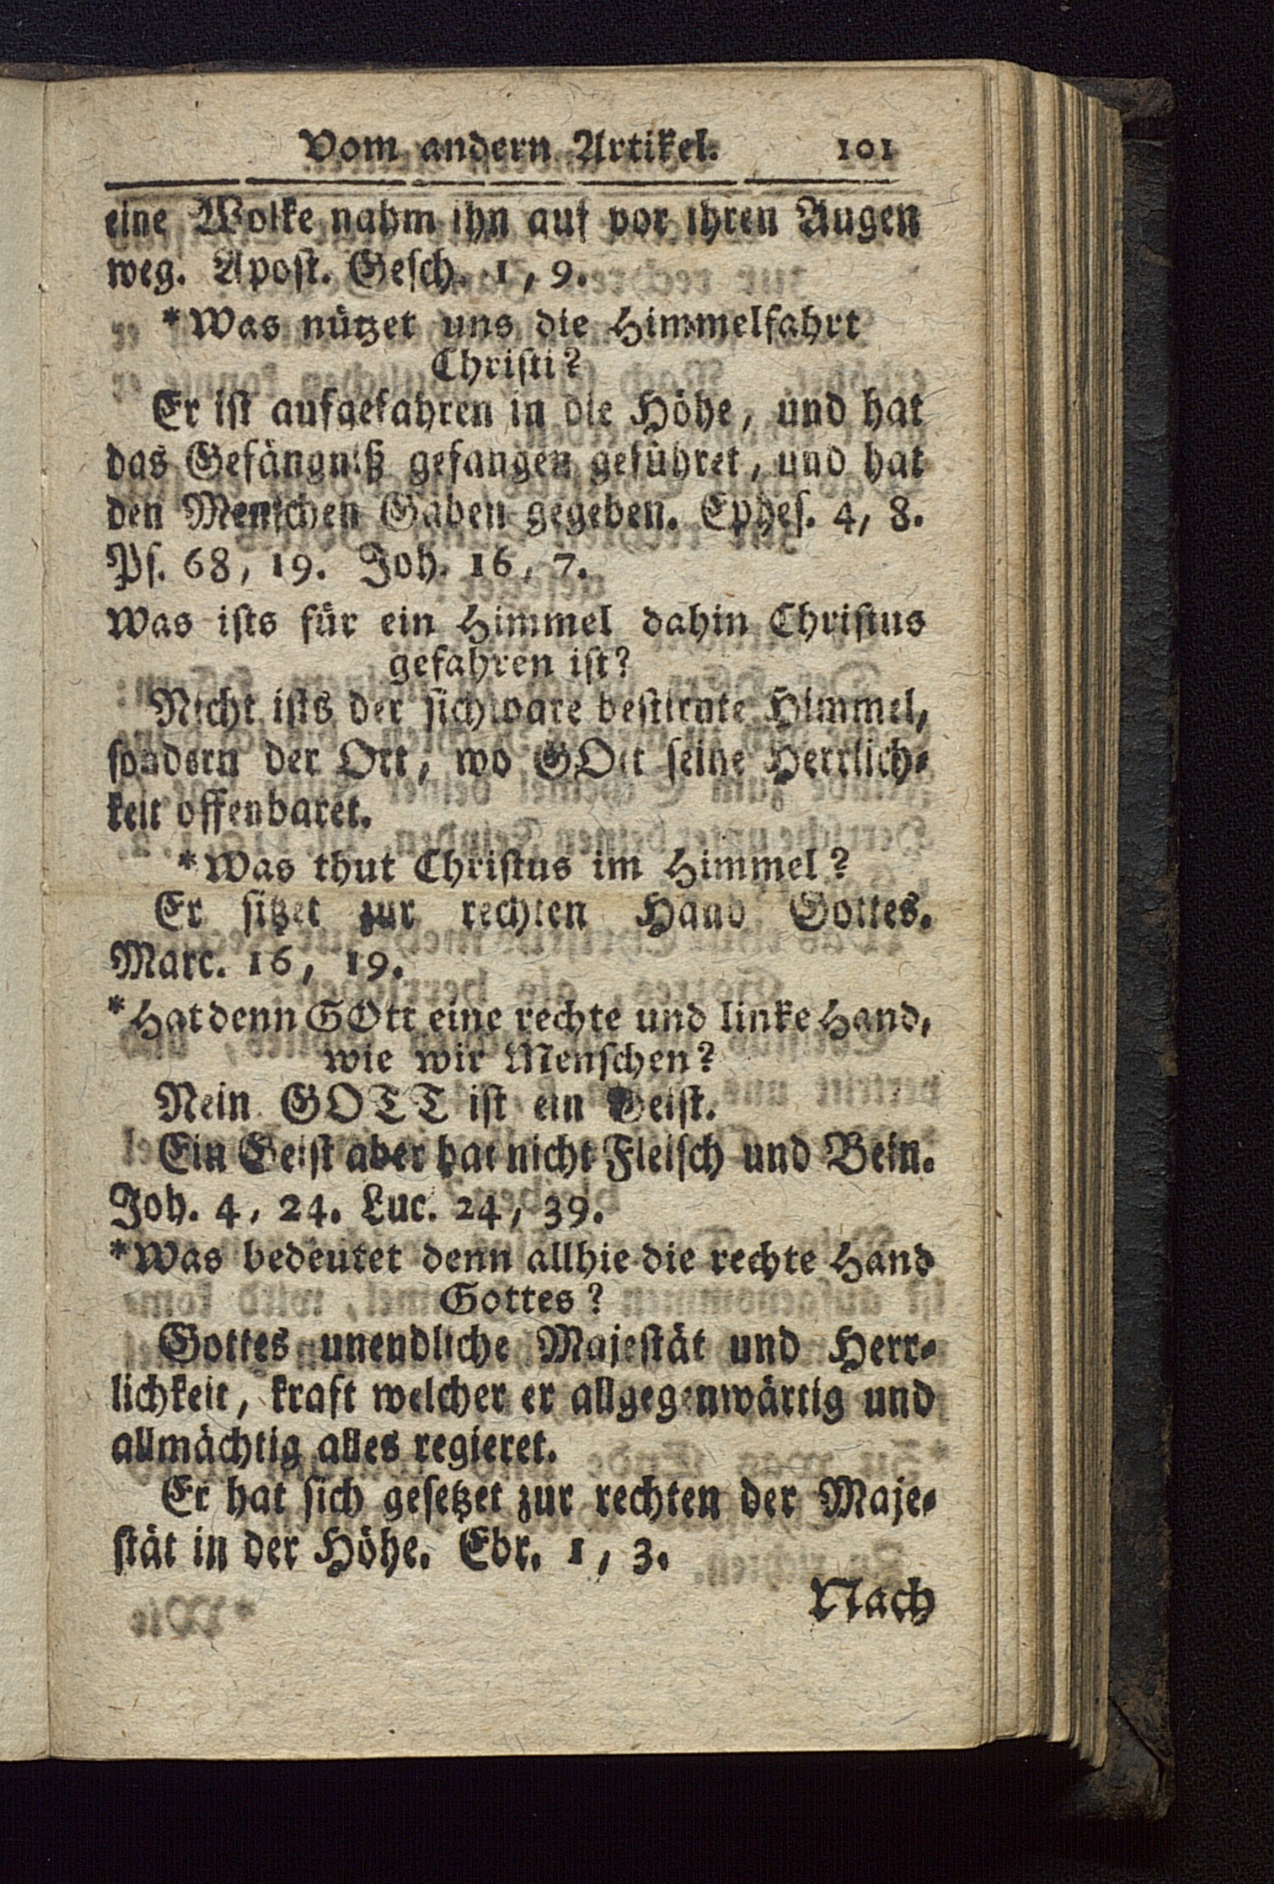 Vom andern Artikel. 101
eine Wolke nahm ihn auf vor ihren Augen
weg. Apost. Gesch. 1, 9.
*Was nützet uns die Himmelfahrt
Christi?
Er ist aufgefahren in die Höhe, und hat
das Gefängniß gefangen geführet, und hat
den Menschen Gaben gegeben. Ephes. 4, 8.
Ps. 68, 19. Joh. 16, 7.
Was ists für ein Himmel dahin Christus
gefahren ist?
Nicht ists der sichtbare bestirnte Himmel,
sondern der Ort, wo GOtt seine Herrlich-
keit offenbaret.
*Was thut Christus im Himmel?
Er sitzet zur rechten Hand Gottes.
Marc. 16, 19.
*Hat denn GOtt eine rechte und linke Hand,
wie wir Menschen?
Nein GOTT ist ein Geist.
Ein Geist aber hat nicht Fleisch und Bein.
Joh. 4, 24. Luc. 24, 39.
*Was bedeutet denn allhie die rechte Hand
Gottes?
Gottes unendliche Majestät und Herr-
lichkeit, kraft welcher er allgegenwärtig und
allmächtig alles regieret.
Er hat sich gesetzet zur rechten der Maje-
stät in der Höhe. Ebr. 1, 3.
Nach